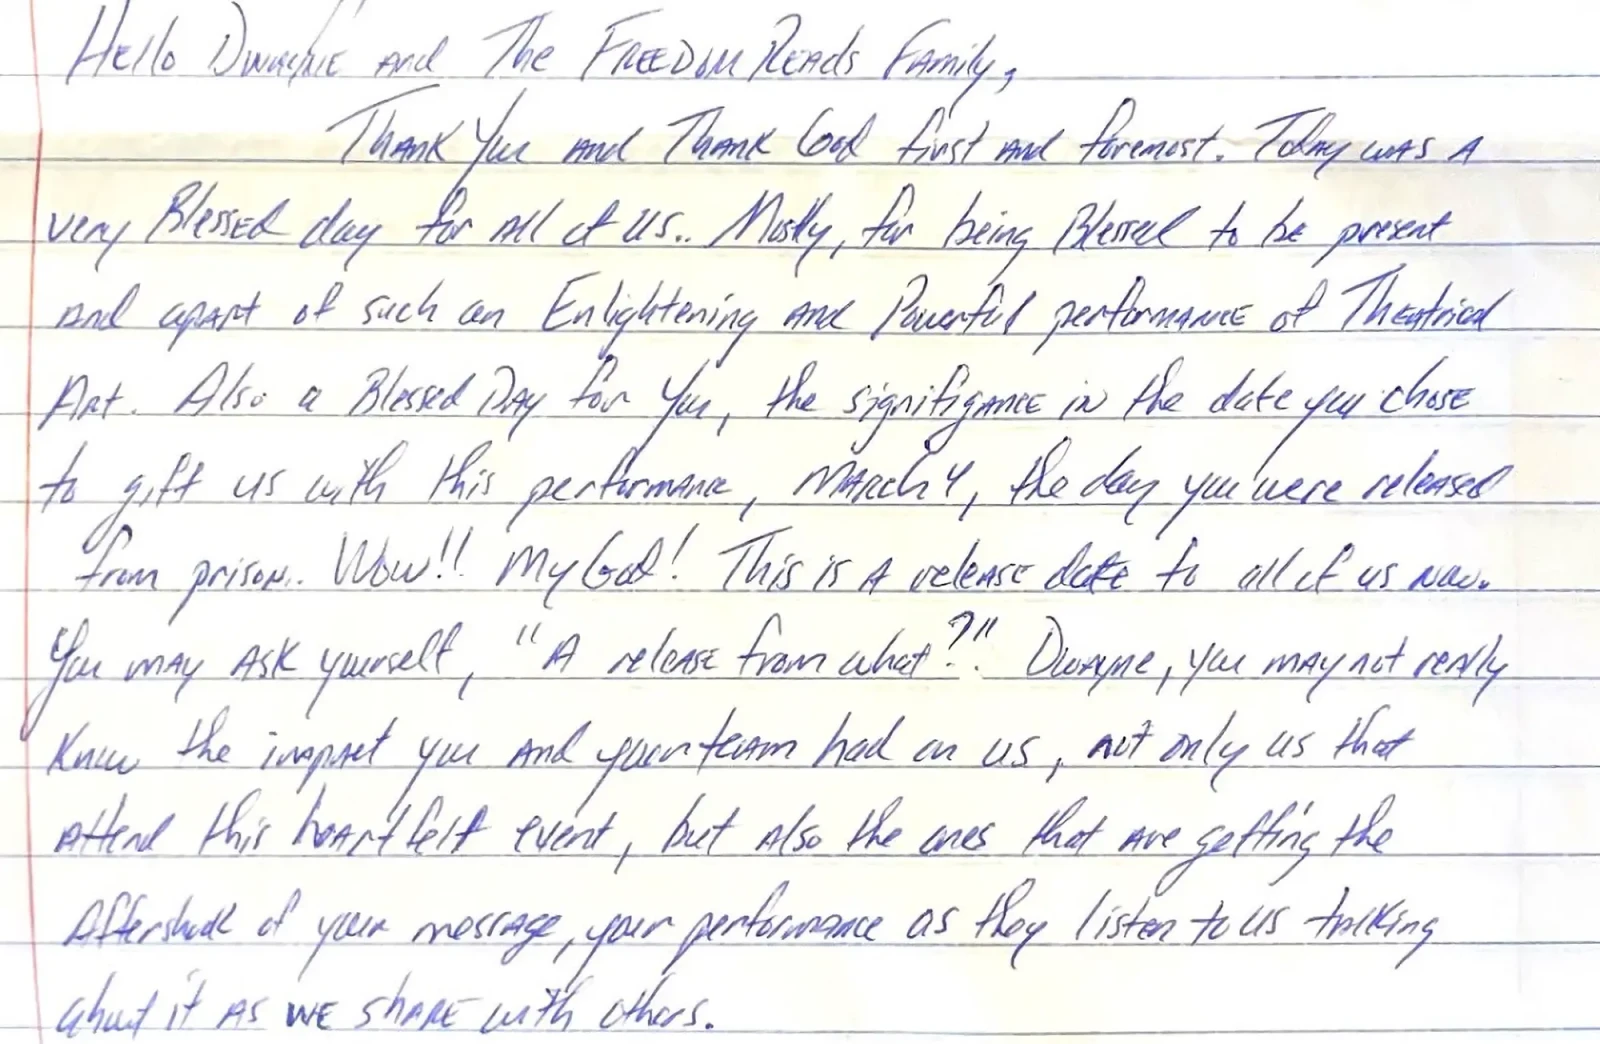 Hello Dwayne and The FREEDOM READS Family,
Thank You and Thank God first and foremost. Today was a
very Blessed day for all of us.. Mostly, for being Blessed to be present
and apart of such an Enlightening and Powerful performance of Theatrical
Art. Also a Blessed Day for You, the signifigance in the date you chose
to gift us with this performance, March 4, the day you were released
from prison.. Wow!! My God! This is a release date to all of us now.
You may ask yourself, "A release from what?" Dwayne, you may not really
know the impact you and your team had on us, not only us that
attend this heartfelt event, but also the ones that are getting the
Aftershock of your message, your performance as they listen to us talking
about it as we share with others.